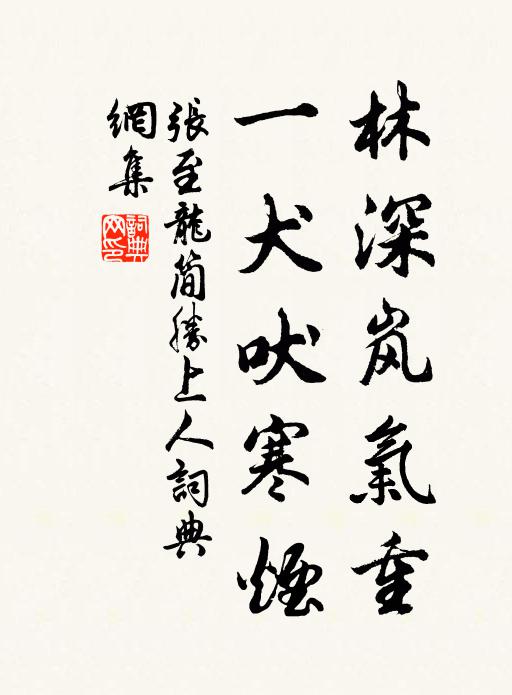 林深岚氣重
一犬吠寒煙
張至龍簡勝上人詞典
網集
詞典網印